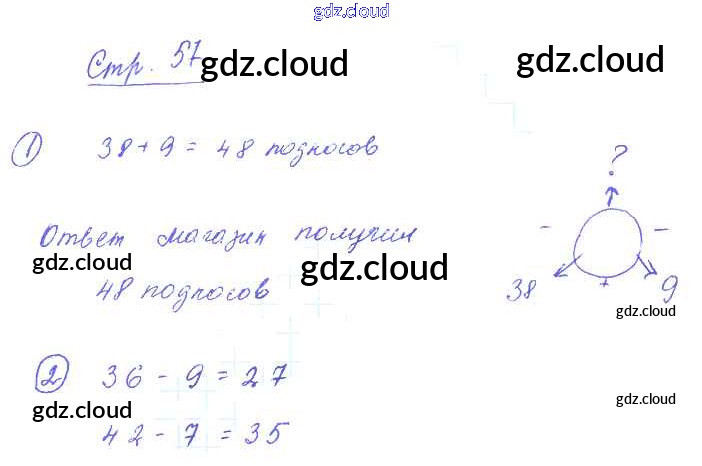 gdz.cloud
Стр. 57 gdz.cloud gdz.cloud
1 38 + 9 = 48 подносов
?
Ответ магазин получил
- -
gdz.cloud gdz.cloud
48 подносов
38 + 9
gdz.cloud
2 36 - 9 = 27
gdz.cloud gdz.cloud
42 - 7 = 35